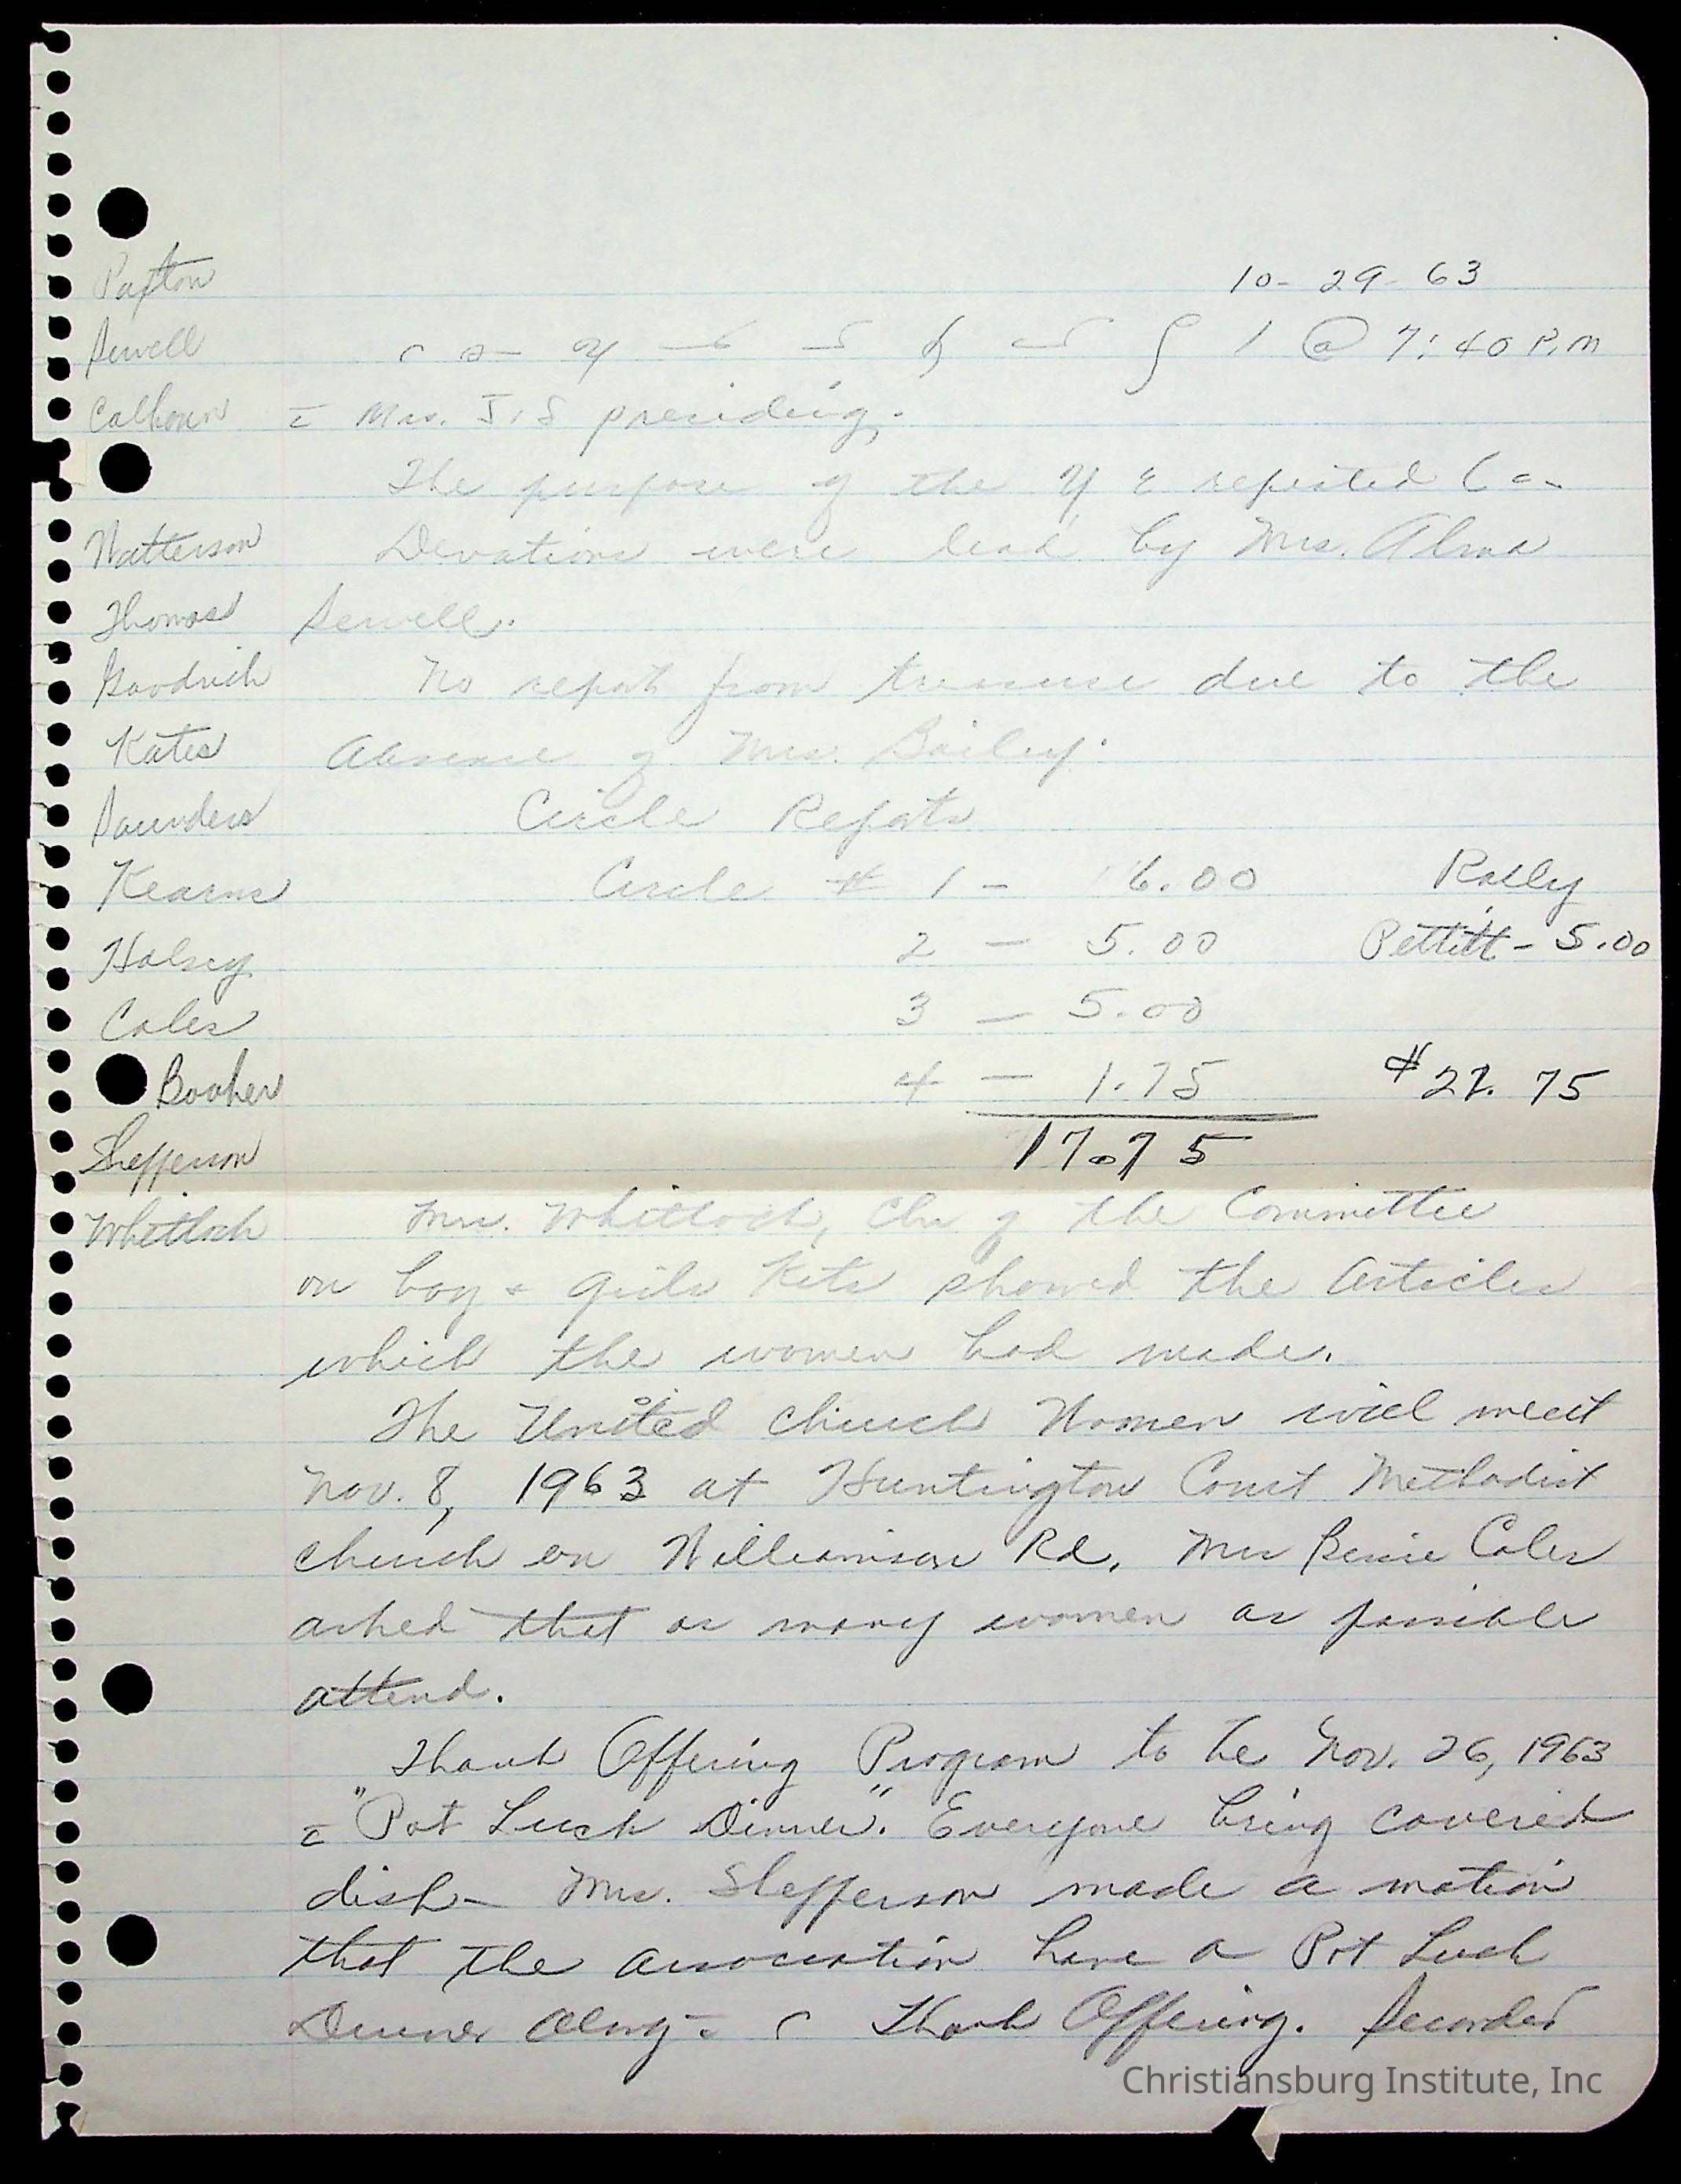 10-29-63
Paxton
Sewell
@ 7:40 P.M
Calhoun
c̄ Mrs. J.S presiding.
The purpose of the repeated
Watterson
Devations were lead by Mrs. Alma
Thomas
Sewell.
Goodrich
No report from due to the
Kates
Absence of Mrs. Bailey.
Saunders
Circle Reports
Kearns
Circle # 1 - 6.00 Rally
Halsey
2 - 5.00 Pettitt - 5.00
Coles
3 - 5.00
Booker
4 - 1.75 $22.75
Shefferson
17.75
Whitlock
Mrs. Whitlock, Chr of the Committee
on boy & girls Kits showed the Articles
which the women had made.
The United Church Women will meet
Nov. 8, 1963 at Huntington Court Methodist
church on Williamson Rd. Mrs Bessie Coles
asked that as many women as possible
attend.
Thank Offering Program to be Nov. 26, 1963
c̄ "Pot Luck Dinner". Everyone bring covered
dish - Mrs. Shefferson made a motion
that the association have a Pot Luck
Dinner along c̄ Thank Offering. Seconded
Christiansburg Institute, Inc